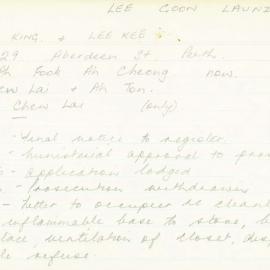 LEE COON LAUN
KING & LEE KEE
29 Aberdeen St. Perth.
Ah Fook Ah Cheong now.
ew Lai & Ah Ton.
Chew Lai (only)
- Final notice to register.
- Ministerial approval to
- Application lodged
- Prosecution withdrawn
- Letter to occupier re
inflammable base to stove,
ventilation of closet,
refuse.